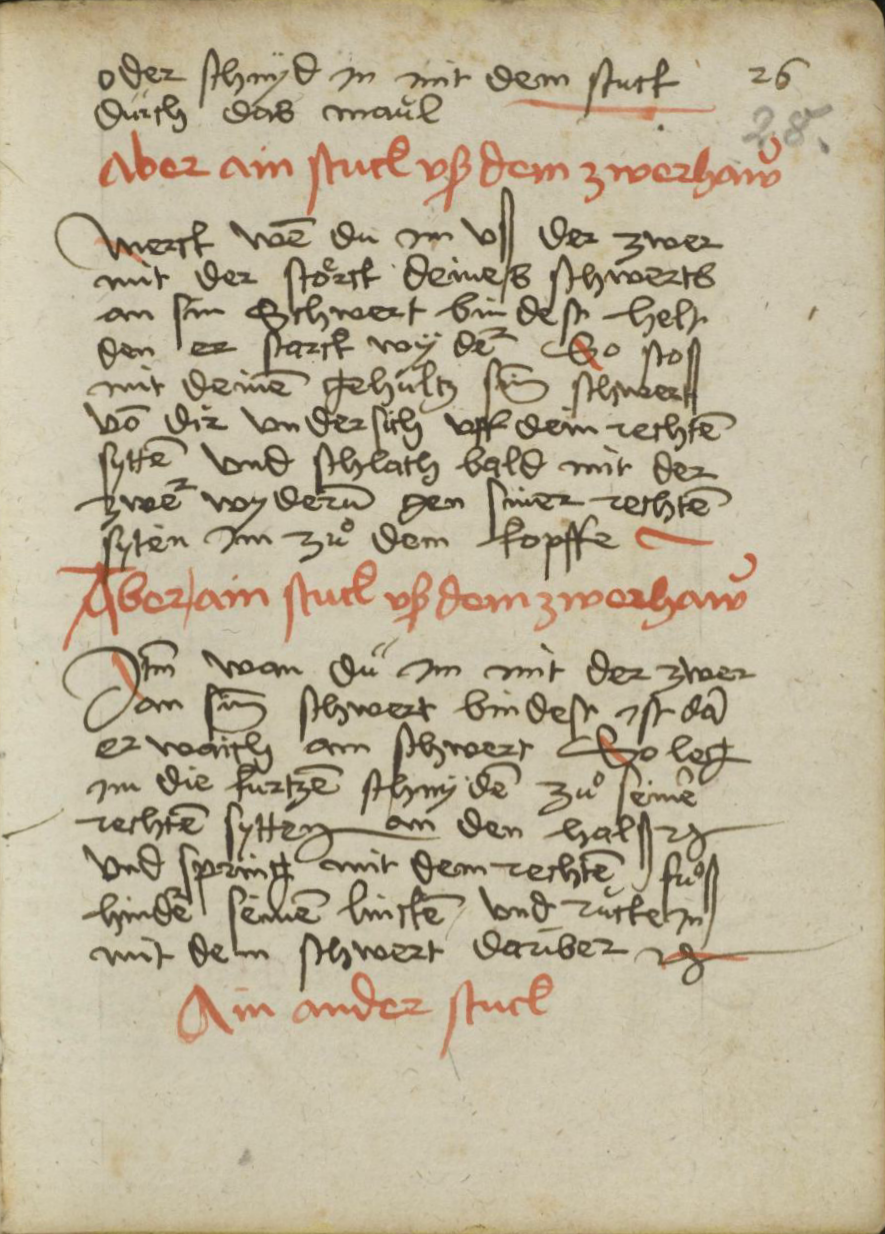 oder schnyd in mit dem stuck 26
durch das maul
28.
Aber ain stuck vß dem zwerhaw
Merck wē du im vß der zwer
mit der störck deines schwerts
an sin Schwert bindest helt
den er starck wÿder So stoß
mit deinē gehultz sin schwert
vō dir vndersich vff dein rechtē
syttē vnd schlach bald mit der
zwer wyderū gen siner rechtē
syten Im zů dem kopffe
Aber ain stuck vß dem zwerhaw
Itm wan du im mit der zwer
an sin schwert bindest ist dā
er waich am schwert So leg
im die kurtzē schnÿdē zů seinē
rechtē sytten an den halß
vnd spring mit dem rechtē fůß
hinder seinē linckē vnd rucke in
mit dem schwert darüber
Ain ander stuck